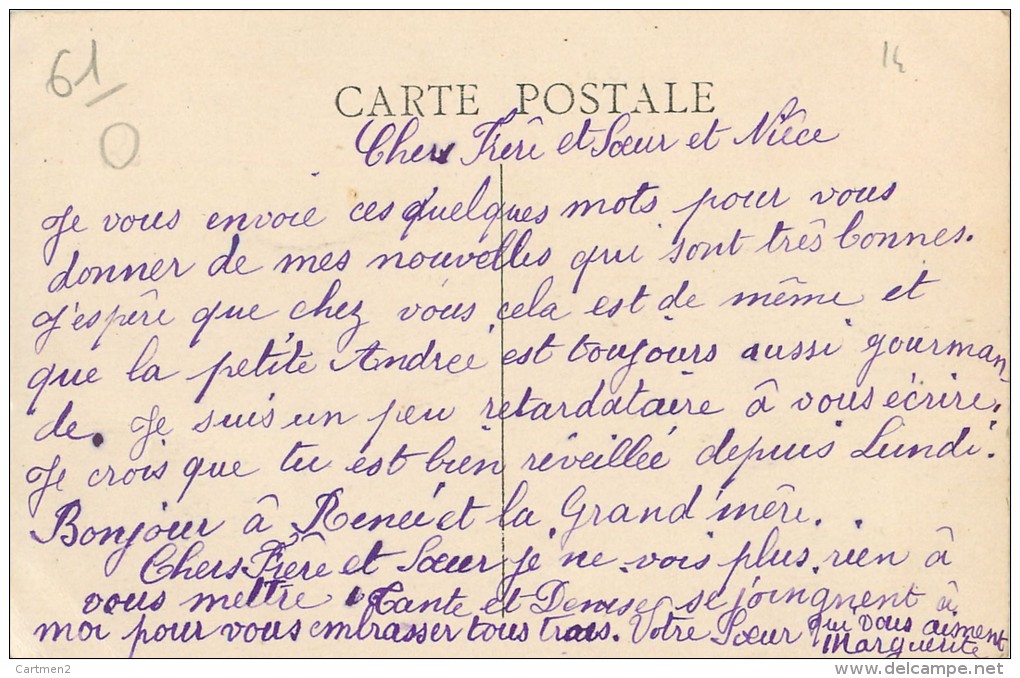 61
14
CARTE POSTALE
Chers Frère et Sœur et Nièce
Je vous envoie ces quelques mots pour vous
donner de mes nouvelles qui sont très bonnes.
J'espère que chez vous cela est de même et
que la petite Andrée est toujours aussi gourman-
de. Je suis un peu retardataire à vous écrire.
Je crois que tu est bien réveillée depuis Lundi.
Bonjour à Renée et la Grand'mère.
Chers Frère et Sœur je ne vois plus rien à
vous mettre. Tante et Denise se joingnent à
moi pour vous embrasser tous trois. Votre Sœur qui vous aiment
Marguerite
Cartmen2
delcampe.net